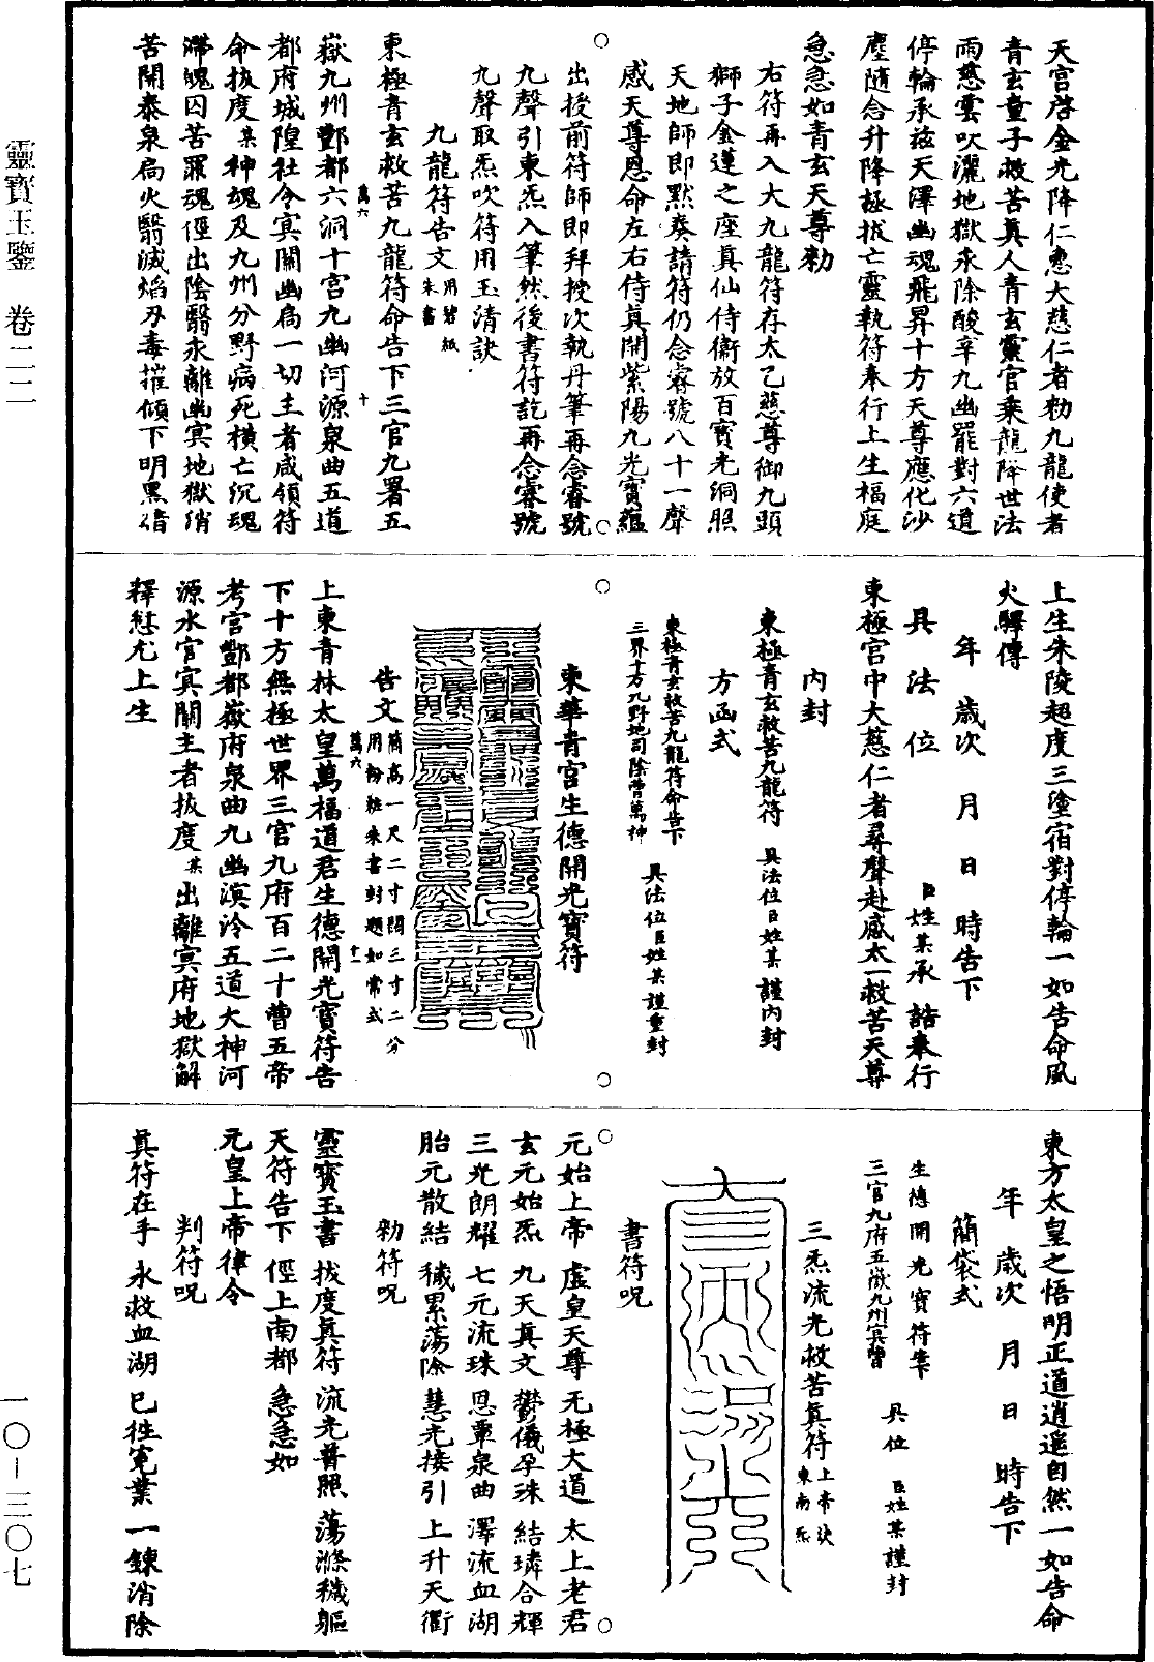 靈寶玉鑒　卷二二
一〇－三〇七
天宮啓金光降仁惠大慈仁者勑九龍使者
青玄童子救苦真人青玄靈官乘龍降世法
雨慈雲吹灑地獄永除酸辛九幽罷對六道
停輪承玆天澤幽魂飛昇十方天尊應化沙
塵隨念升降極拔亡靈執符奉行上生福庭
急急如青玄天尊勑
右符再入大九龍符存太乙慈尊御九頭
獅子金蓮之座真仙侍衛放百寶光洞照
天地師即默奏請符仍念睿號八十一聲
感天尊恩命左右侍真開紫陽九光寶蘊
出授前符師即拜授次執丹筆再念睿號
九聲引東炁入筆然後書符訖再念睿號
九聲取炁吹符用玉清訣
九龍符告文用碧紙朱書
東極青玄救苦九龍符命告下三官九署五
萬六
嶽九州酆都六洞十宮九幽河源泉曲五道
十
都府城隍社令冥關幽局一切主者咸領符
命拔度某神魂及九州分野病死橫亡沉魂
滯魄囚苦罪魂徑出陰翳永離幽冥地獄銷
苦開泰泉局火翳滅焰刃毒摧傾下明黑猎
上生朱陵超度三塗宿對停輪一如告命風
火驛傳
年　歲次　月　日　時告下
具　法　位　臣姓某承　誥奉行
東極宮中大慈仁者尋聲赴感太一救苦天尊
內封
東極青玄救苦九龍符　具法位臣姓某　謹內封
方函式
東極青玄救苦九龍符命告下
三界十方九野地司陰曹萬神　具法位臣姓某謹重封
東華青宮生德開光寶符
告文簡高一尺二寸闊三寸二分
用粉粧朱書封題如常式
萬六　十一
上東青林太皇萬福道君生德開光寶符告
下十方無極世界三官九府百二十曹五帝
考官酆都嶽府泉曲九幽溟泠五道大神河
源水官冥關主者拔度某出離冥府地獄解
釋愆尤上生
東方太皇之悟明正道逍遥自然一如告命
年　歲次　月　日　時告下
簡袋式
生德開光寶符告下
三官九府五嶽九州冥曹　具位　臣姓某謹封
三炁流光救苦真符上帝訣東南炁
書符呪
元始上帝　虛皇天尊　无極大道　太上老君
玄元始炁　九天真文　鬱儀孕洙　結璘合輝
三光朗耀　七元流珠　恩覃泉曲　澤流血湖
胎元散結　穢累蕩除　慧光接引　上升天衢
勑符呪
靈寶玉書　拔度真符　流光普照　蕩滌穢軀
天符告下　徑上南都　急急如
元皇上帝律令
判符呪
真符在手　永救血湖　已往冤業　一鍊消除